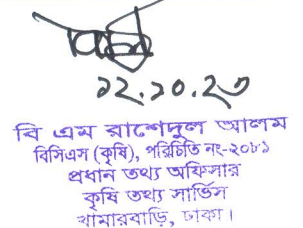 ১২.১০.২৩
বি এম রাশেদুল আলম
বিসিএস (কৃষি), পরিচিতি নং-২০৮১
প্রধান তথ্য অফিসার
কৃষি তথ্য সার্ভিস
খামারবাড়ি, ঢাকা।